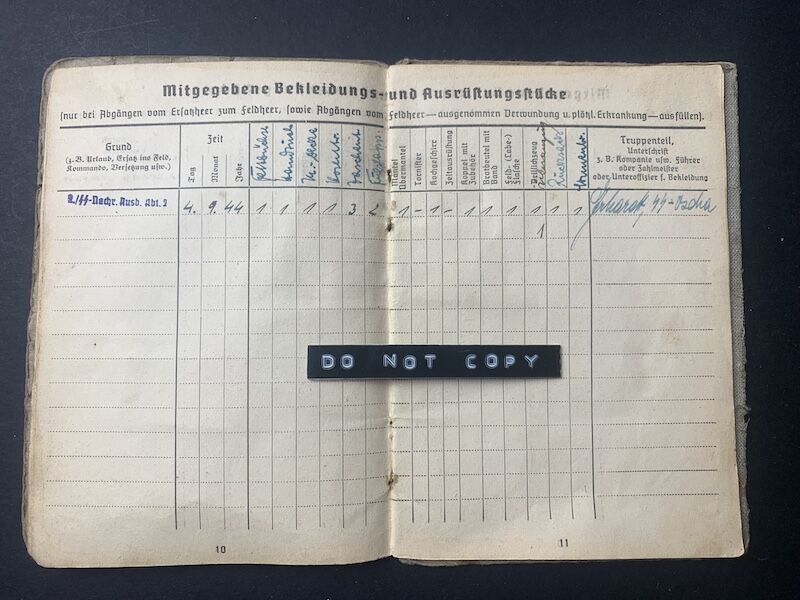 Mitgegebene Bekleidungs- und Ausrüstungsstücke
(nur bei Abgängen vom Ersatzheer zum Feldheer, sowie Abgängen vom Feldheer — ausgenommen Verwundung u. plötzl. Erkrankung — ausfüllen).
Grund
(z. B. Urlaub, Ersatz ins Feld,
Kommando, Versetzung usw.)
Zeit
Tag
Monat
Jahr
Mantel
Übermantel
Tornister
Kochgeschirr
Zeltausrüstung
Koppel mit
Zubehör
Brotbeutel mit
Band
Feld- (Labe-)
flasche
Drillichzeug
Truppenteil,
Unterschrift
z. B. Kompanie usw. Führer
oder Zahlmeister
oder Unteroffizier f. Bekleidung
2./SS-Nachr. Ausb. Abt. 2 4. 9. 44 1 1 1 1 3 2 1 - 1 - 1 1 1 1 1 1 SS-Oscha
1
DO NOT COPY
10
11